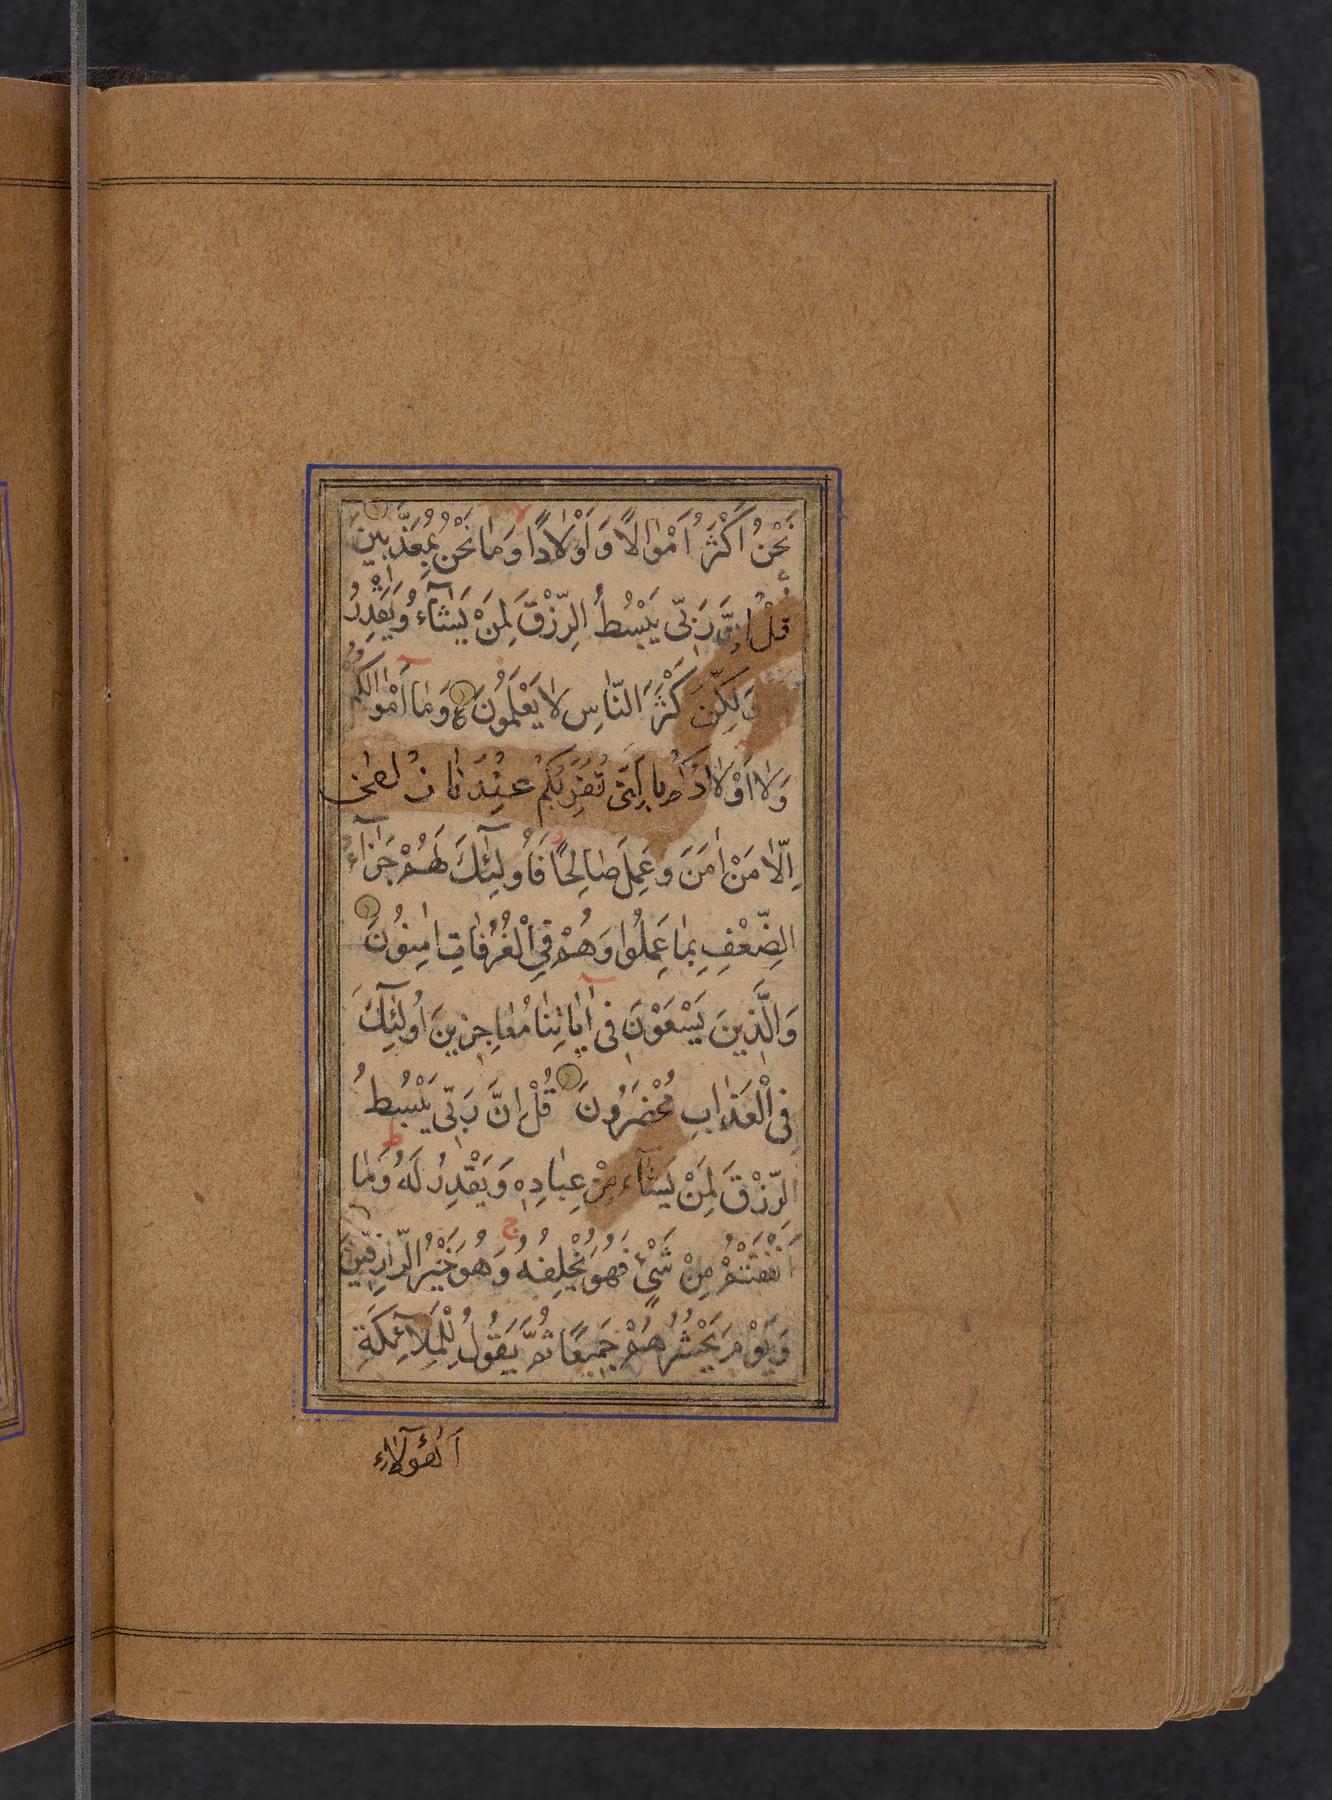 نَحْنُ اَكْثَرُ اَمْوٰالًا وَ اَوْلٰادًا وَمٰا نَحْنُ بِمُعَذَّبِينَ
قُلْ اِنَّ رَبّى يَبْسُطُ الرِّزْقَ لِمَنْ يَشٰآءُ وَيَقْدِرُ
وَلٰكِنَّ كْثَرَ النّٰاسِ لٰا يَعْلَمُونَ ع وَمٰا اَمْوٰالُكُمْ
وَلٰا اَوْلٰادُكُمْ بِالَّتى تُقَرِّبُكُمْ عِنْدَنٰا زُلفىٰ
اِلّٰا مَنْ اٰمَنَ وَعَمِلَ صٰالِحًا فَاُولٰئِكَ لَهُمْ جَزٰآءُ
الضِّعْفِ بِمٰا عَمِلُوا وَهُمْ فِى الْغُرُفٰاتِ اٰمِنُونَ
وَالَّذِينَ يَسْعَوْنَ فى اٰيٰاتِنٰا مُعٰاجِزينَ اُولٰئِكَ
فِى الْعَذٰابِ مُحْضَرُونَ قُلْ اِنَّ رَبّى يَبْسُطُ
الرِّزْقَ لِمَنْ يَشٰآءُ مِنْ عِبٰادِهِ وَيَقْدِرُ لَهُ وَمٰا
اَنْفَقْتُمْ مِنْ شَىْءٍ فَهُوَ يُخْلِفُهُ وَهُوَ خَيْرُ الرّٰازِقينَ
وَيَوْمَ يَحْشُرُهُمْ جَميعًا ثُمَّ يَقُولُ لِلْمَلٰآئِكَةِ
اَهٰؤُلٰآءِ